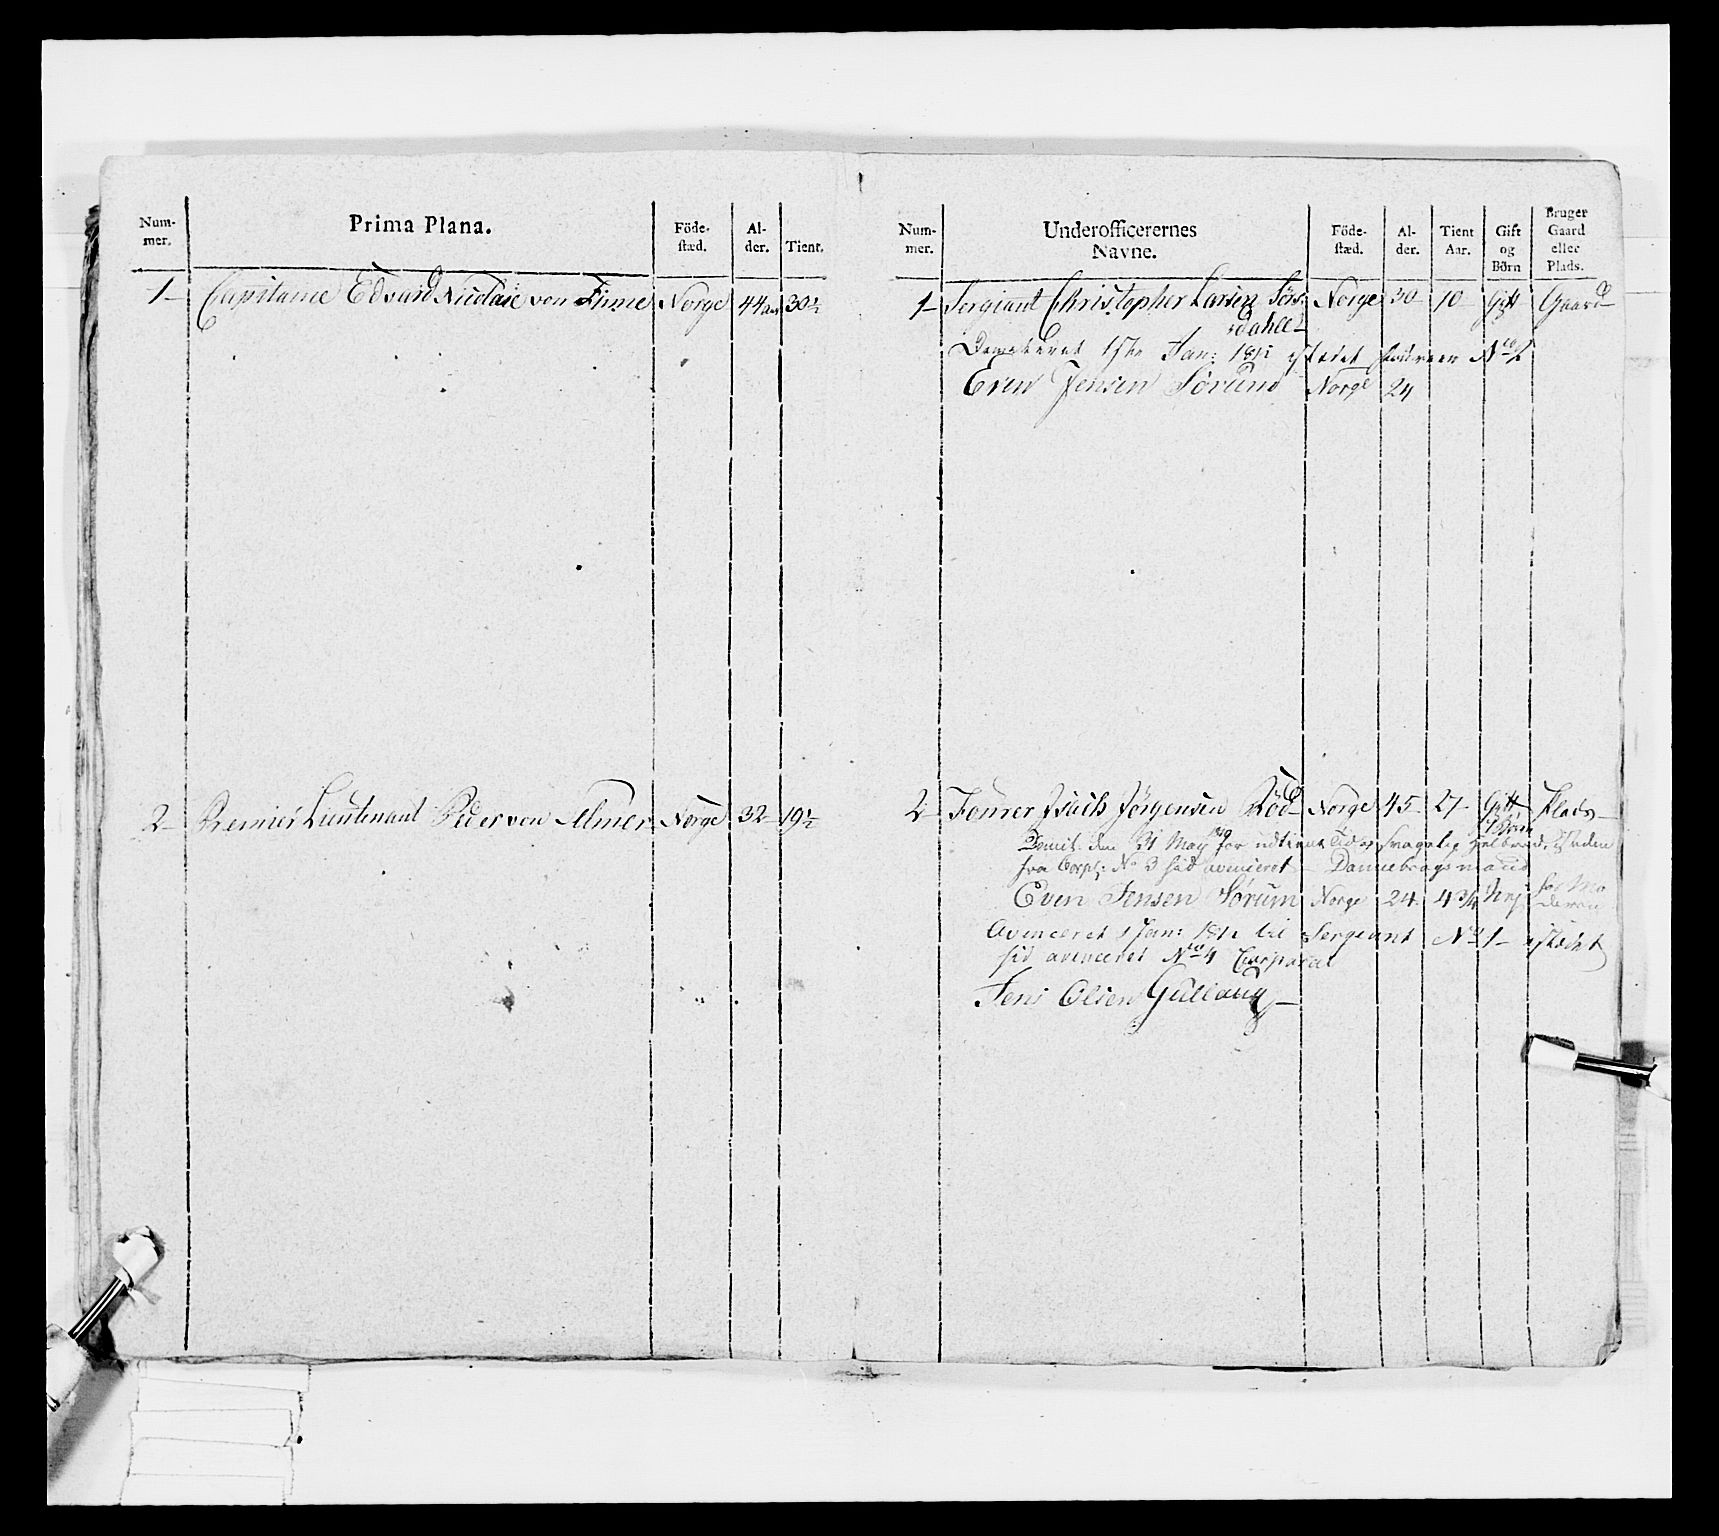 Num-
mer.
Prima Plana.
Föde-
stæd.
Al-
der.
Tient.
1- Capitaine Edvard Nicolaie von Finne Norge 44 aar 30½
2- Premier Lieutenant Peder von Elmer Norge 32 19½
Num-
mer.
Underofficerernes
Navne.
Föde-
stæd.
Al-
der.
Tient
Aar.
Gift
og
Börn
Bruger
Gaard
eller
Plads.
1- Sergiant Christopher Larsen Sørs- Norge 30 10 Gift Gaard
dahl
1ste Jan: 1811 istedet No
Even Jensen Sörum Norge 24
2- Fourer Isach Jörgensen Röd Norge 45 27 Gift Plads
Börn
Demit. den 31 May for udtient Tid og svagelig
fra Corpl: No 3 hid avanceret Dannebrogsmand
Even Jensen Sörum Norge 24 4¾
Avanceret 1 Jan: til Sergeant No 1- istedet
hid avanceret No 4 Corporal
Jens Olsen Gullaug